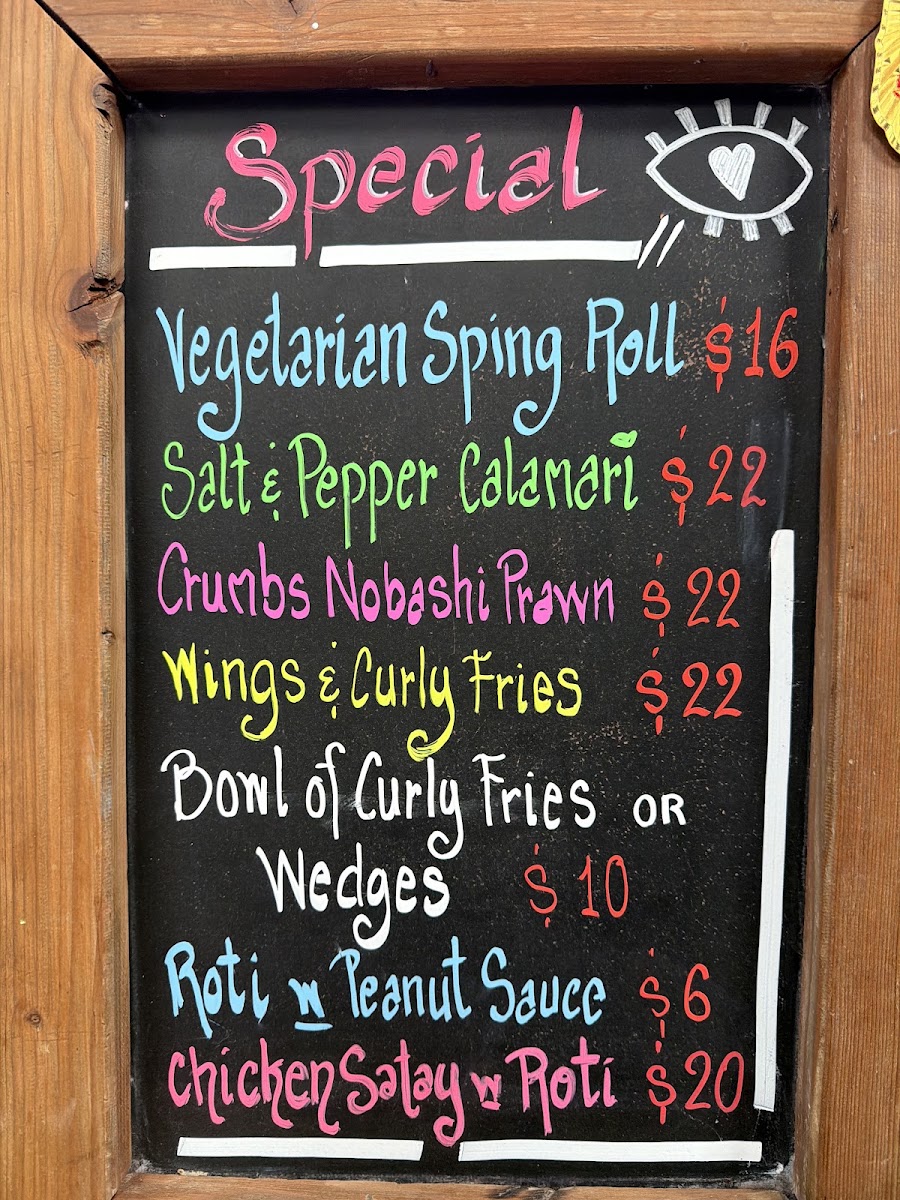 Special
Vegetarian Sping Roll $16
Salt & Pepper Calamari $22
Crumbs Nobashi Prawn $22
Wings & Curly Fries $22
Bowl of Curly Fries OR
Wedges $10
Roti w Peanut Sauce $6
Chicken Satay w Roti $20